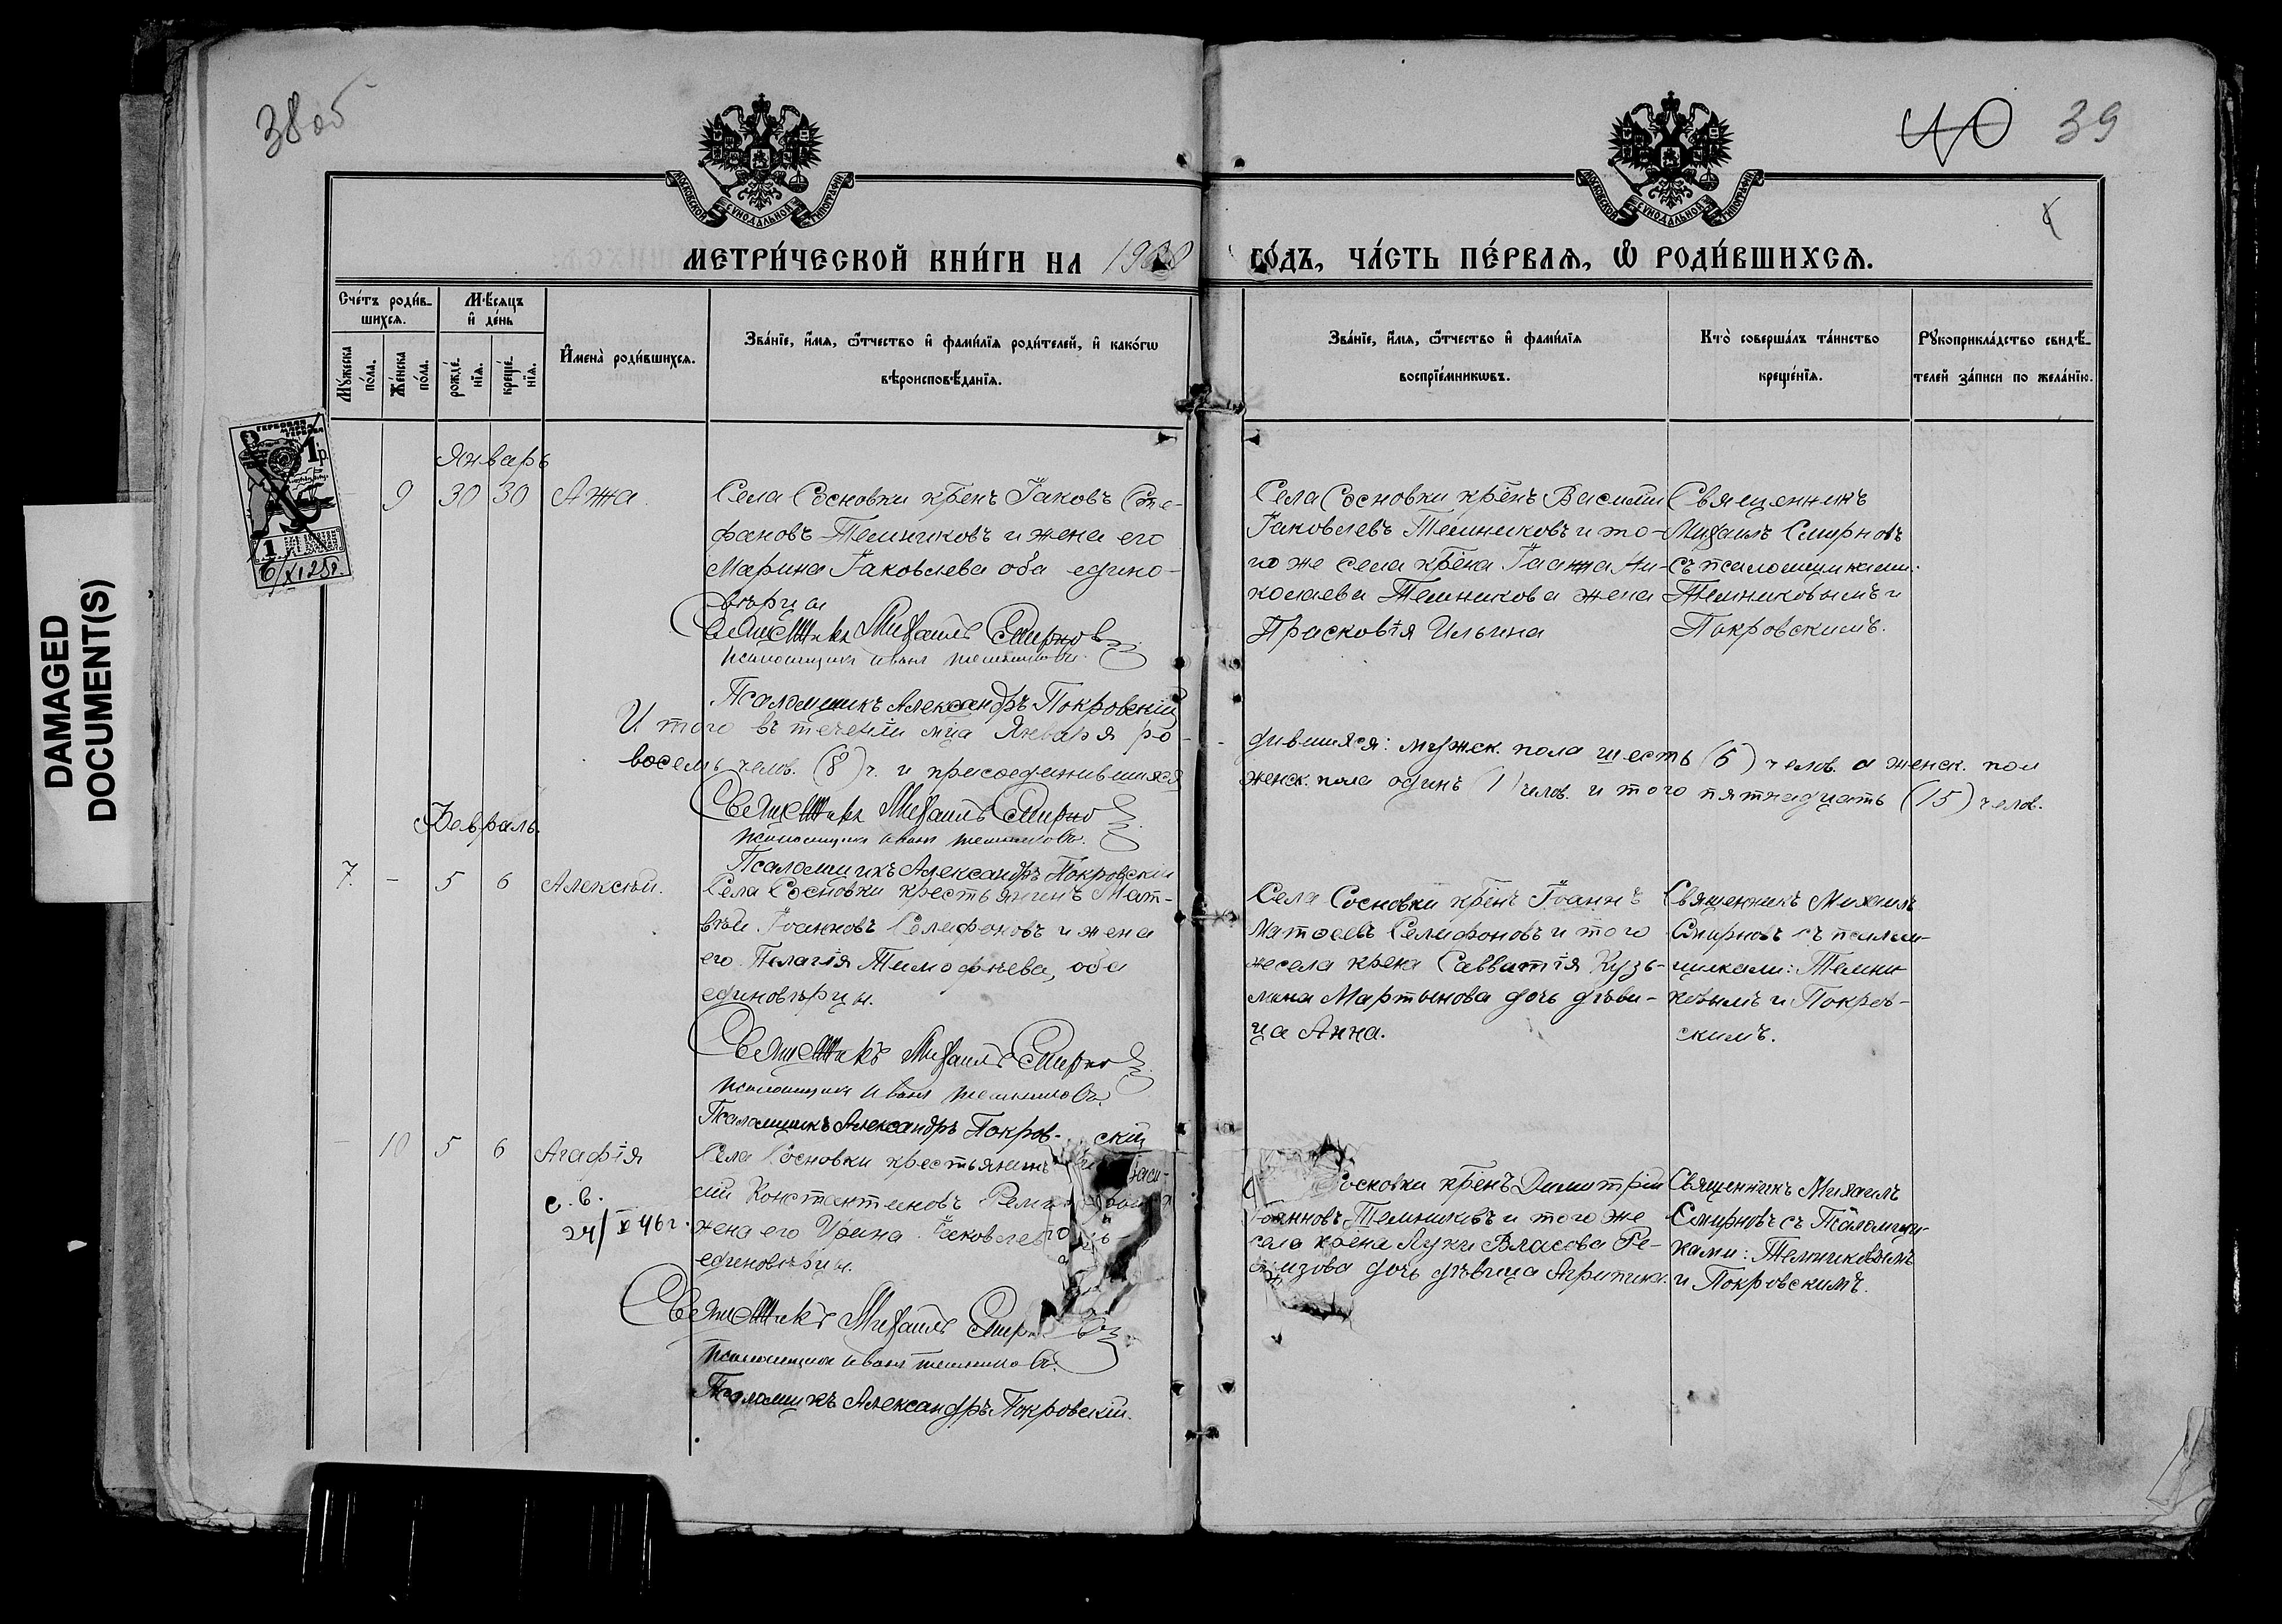 38 об
40 39
МОСКОВСКОЙ СУНОДАЛЬНОЙ ТИПОГРАФІИ
МОСКОВСКОЙ СУНОДАЛЬНОЙ ТИПОГРАФІИ
МЕТРИ́ЧЕСКОЙ КНИ́ГИ НА
ГО́ДЪ, ЧА́СТЬ ПЕ́РВАѦ, Ѡ РОДИ́ВШИХСѦ.
Сче́тъ роди́в-
шихсѧ.
Мѣ́сѧцъ
и҆ де́нь
Мꙋ́жеска
по́ла.
Же́нска
по́ла.
рожде́-
нїѧ.
креще́-
нїѧ.
И҆мена̀ роди́вшихсѧ.
Зва́нїе, и҆́мѧ, ѻ҆́тчество и҆ фами́лїѧ роди́телей, и҆ како́гѡ
вѣроисповѣ́данїѧ.
Зва́нїе, и҆́мѧ, ѻ҆́тчество и҆ фами́лїѧ
воспрїе́мникѡвъ.
Кто̀ соверша́лъ та́инство
креще́нїѧ.
Рꙋкоприкла́дство свидѣ́-
телей за́писи по жела́нїю.
Январь
9 30 30
Села Сосновки крѣнъ Іаковъ Сте-
фановъ Темниковъ и жена его
Марина Іаковлева оба едино-
вѣрцы
Священникъ Михаилъ Смирнов
Псаломщикъ Иванъ Темниковъ.
Псаломщикъ Александръ Покровскій
Села Сосновки крѣнъ Василій
Іаковлевъ Темниковъ и то-
го же села крѣна Іоанна Ни-
колаева Темникова жена
Прасковія Ильина
Священникъ
Михаилъ Смирновъ
съ псаломщиками:
Темниковымъ и
Покровскимъ.
И того въ теченіи мца Января ро-
дившихся: мужск. пола шесть (6) челов. а женск. пол
восемь челов. (8) ч. и присоединившихся
женск. пола одинъ (1) челов. и того пятнадцать (15) челов.
Священникъ Михаилъ Смирно
Псаломщикъ Иванъ Темниковъ.
Псаломщикъ Александръ Покровскій
Февраль.
7. - 5 6 Алексѣй.
Села Сосновки крестьянинъ Мат-
вѣй Іоанновъ Селифоновъ и жена
его Пелагія Тимофѣева, оба
единовѣрцы.
Священникъ Михаилъ Смирно
Псаломщикъ Иванъ Темниковъ.
Псаломщикъ Александръ Покров-скій
Села Сосновки крѣнъ Іоаннъ
Матвеевъ Селифоновъ и того
же села крѣна Савватія Кузь-
мина Мартынова дочь дѣви-
ца Анна.
Священникъ Михаилъ
Смирновъ съ псалом-
щиками: Темни-
ковымъ и Покров-
скимъ.
- 10 5 6 Агафія
с. в.
24/X 46 г.
Села Сосновки крестьянинъ Васи-
лій Константиновъ
жена его Ирина
единовѣрцы.
Священникъ Михаилъ Смирн
Псаломщикъ Иванъ Темниковъ.
Псаломщикъ Александръ Покровскій.
Сосновки крѣнъ Димитрій
Іоанновъ Темниковъ и того же
села крѣна Луки Власова Ре-
мизова дочь дѣвица Агрипина.
Священникъ Михаилъ
Смирновъ съ Псаломщи-
ками: Темниковымъ
и Покровскимъ.
ГЕРБОВАЯ МАРКА
1 р.
6/XI 25 г.
DAMAGED
DOCUMENT(S)